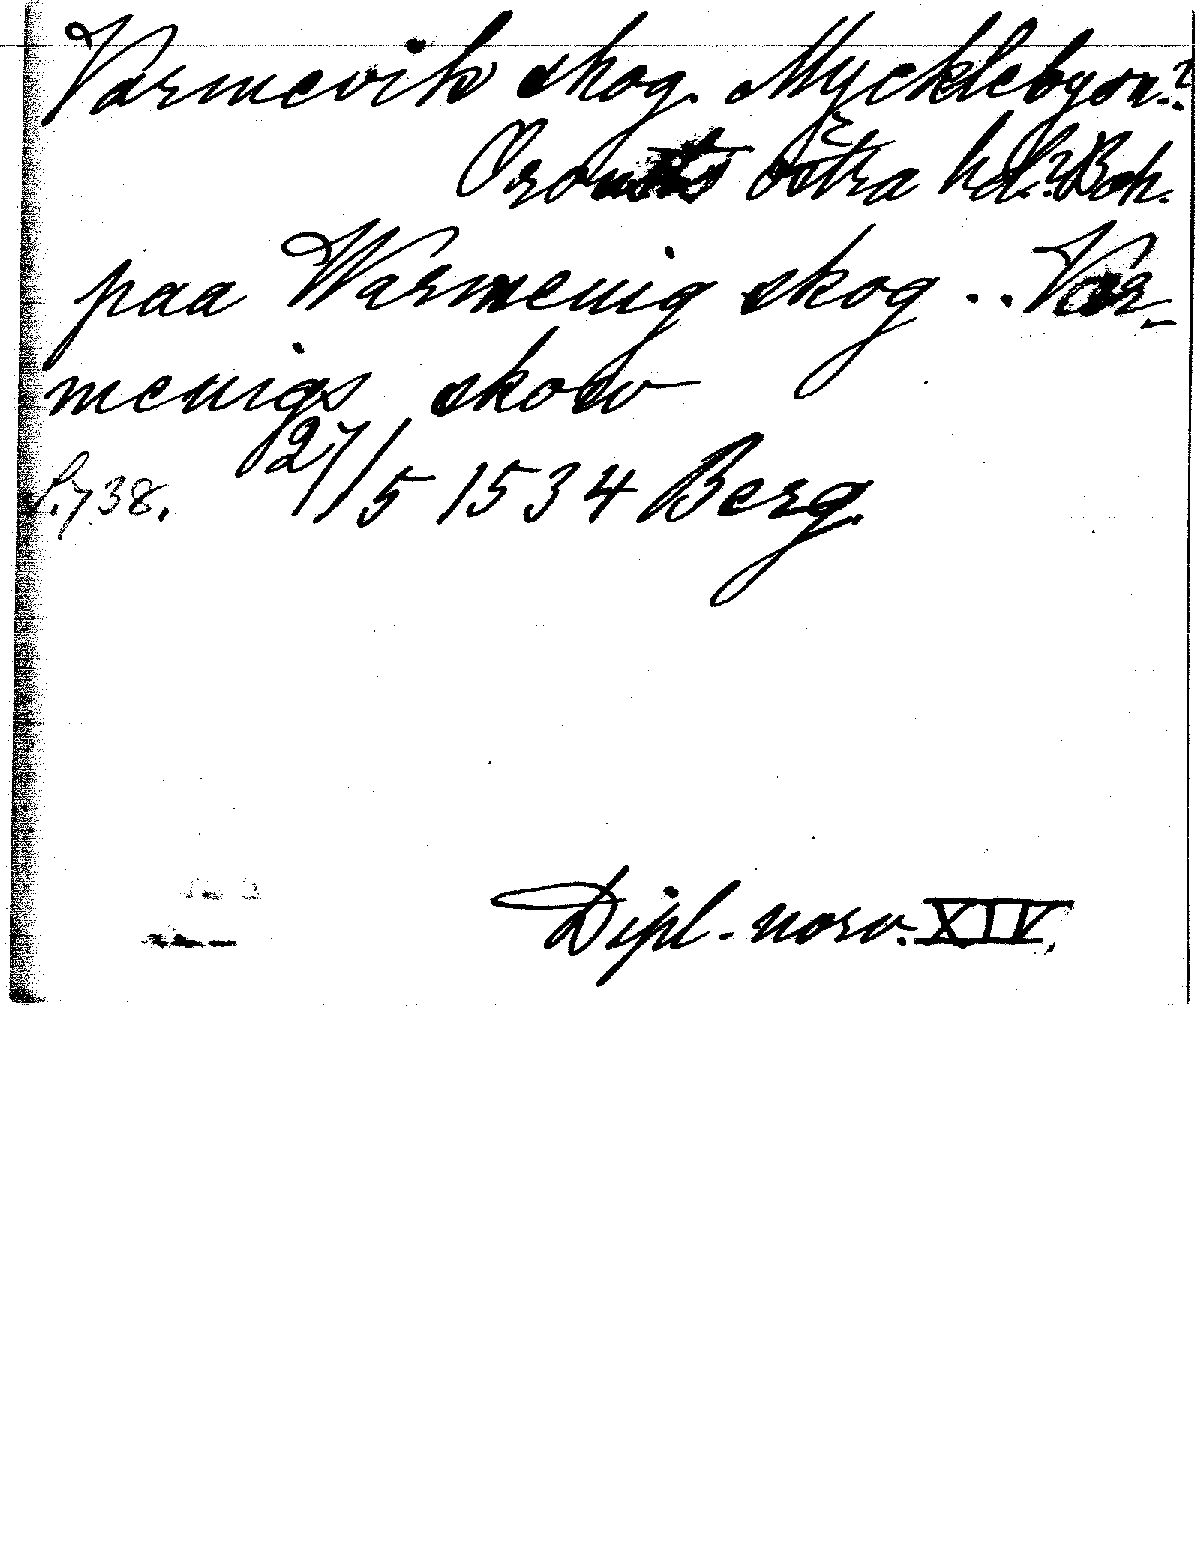 Varmevik skog. Myckleby sn.?
Orousts östra hd.? Boh.
paa Warmeuig skog .. Var-
meuigs skow
S. 738. 27/5 1534 Berg.
Dipl. norv. XIV.